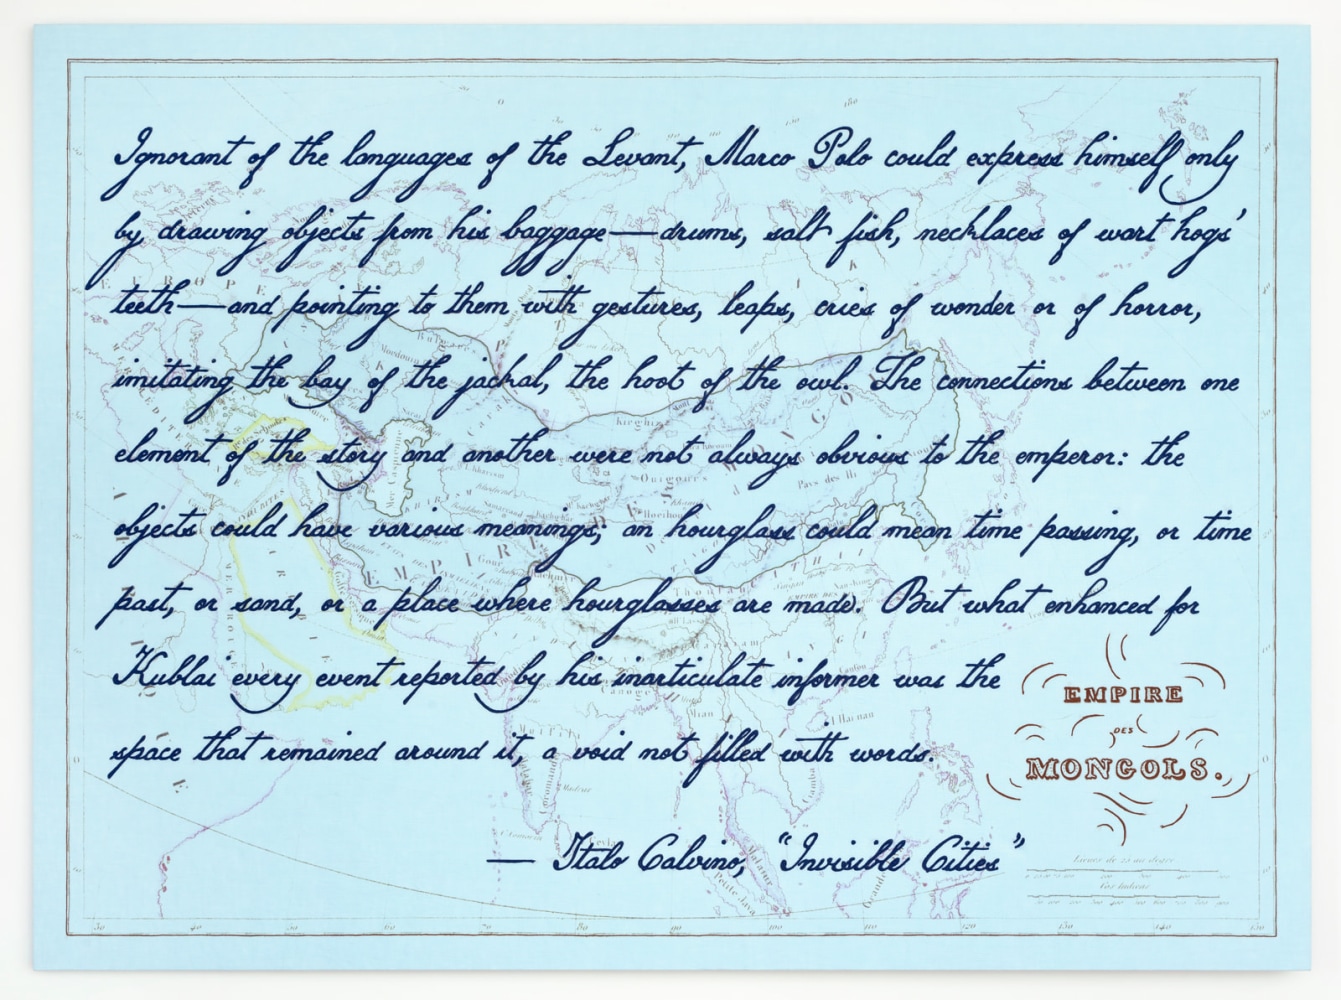 Ignorant of the languages of the Levant, Marco Polo could express himself only
by drawing objects from his baggage—drums, salt fish, necklaces of wart hogs'
teeth—and pointing to them with gestures, leaps, cries of wonder or of horror,
imitating the bay of the jackal, the hoot of the owl. The connections between one
element of the story and another were not always obvious to the emperor: the
objects could have various meanings; an hourglass could mean time passing, or time
past, or sand, or a place where hourglasses are made. But what enhanced for
Kublai every event reported by his inarticulate informer was the
space that remained around it, a void not filled with words.
— Italo Calvino, "Invisible Cities"
EMPIRE
DES
MONGOLS.
EUROPE
Kirghiz
Ouigours
EMPIRE
Lieues de 25 au degré